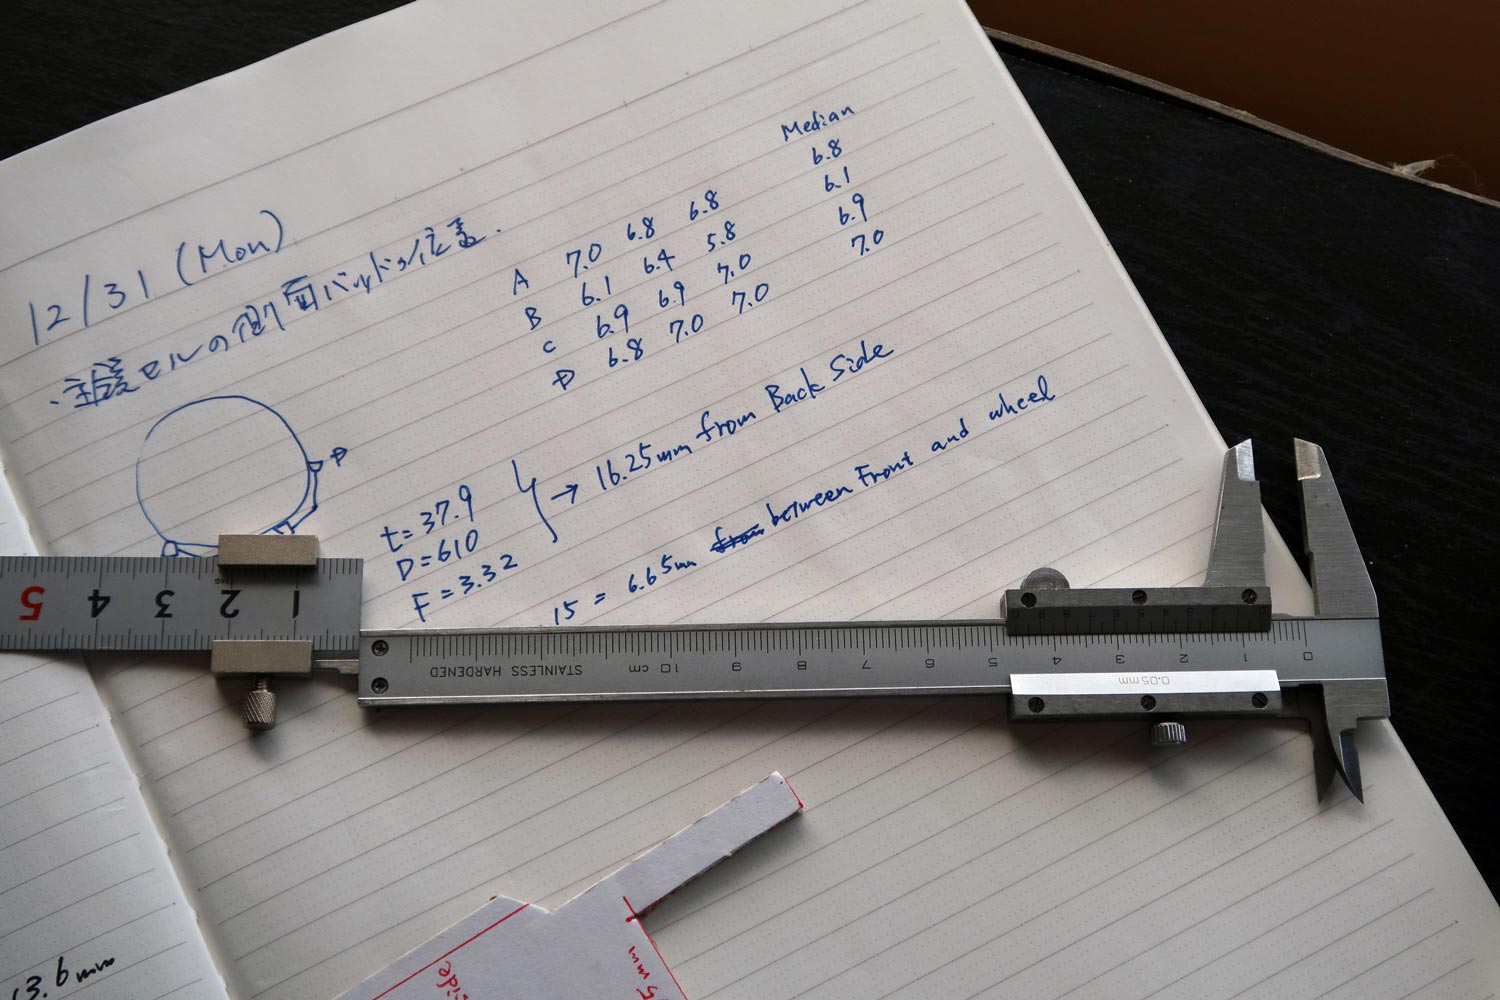 12/31 (Mon)
・主鏡セルの側面パッドの位置.
Median
A 7.0 6.8 6.8 6.8
B 6.1 6.4 5.8 6.1
C 6.9 6.9 7.0 6.9
D 6.8 7.0 7.0 7.0
D
t=37.9
D=610
F=3.32
→ 16.25mm from Back Side
15 = 6.65mm from between Front and wheel
5 4 3 2 1
STAINLESS HARDENED
cm 10 9 8 7 6 5 4 3 2 1 0
0.05mm
13.6mm
side
5mm